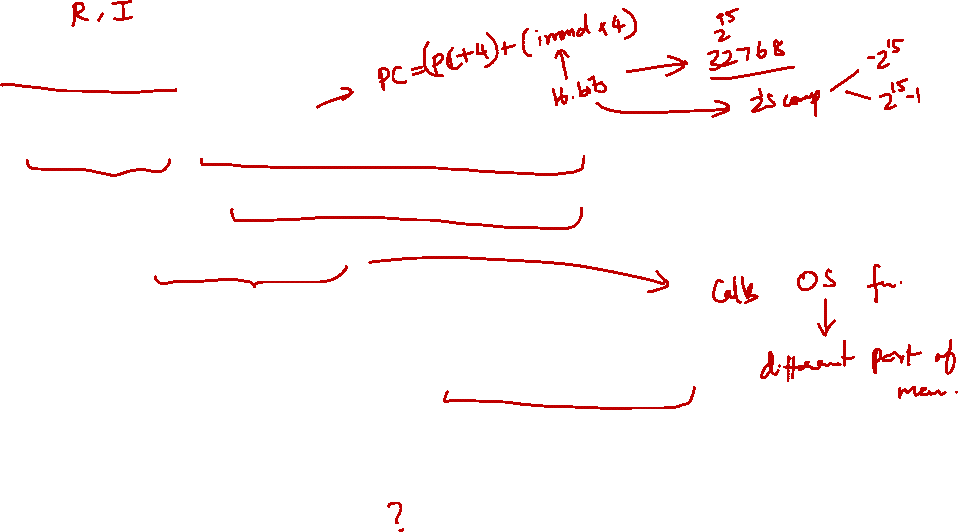 R, I
PC=(PC+4)+(immd*4)
16.bits
2^15
32768
2's comp
-2^15
2^15-1
Calls OS fn.
different part of
mem.
?